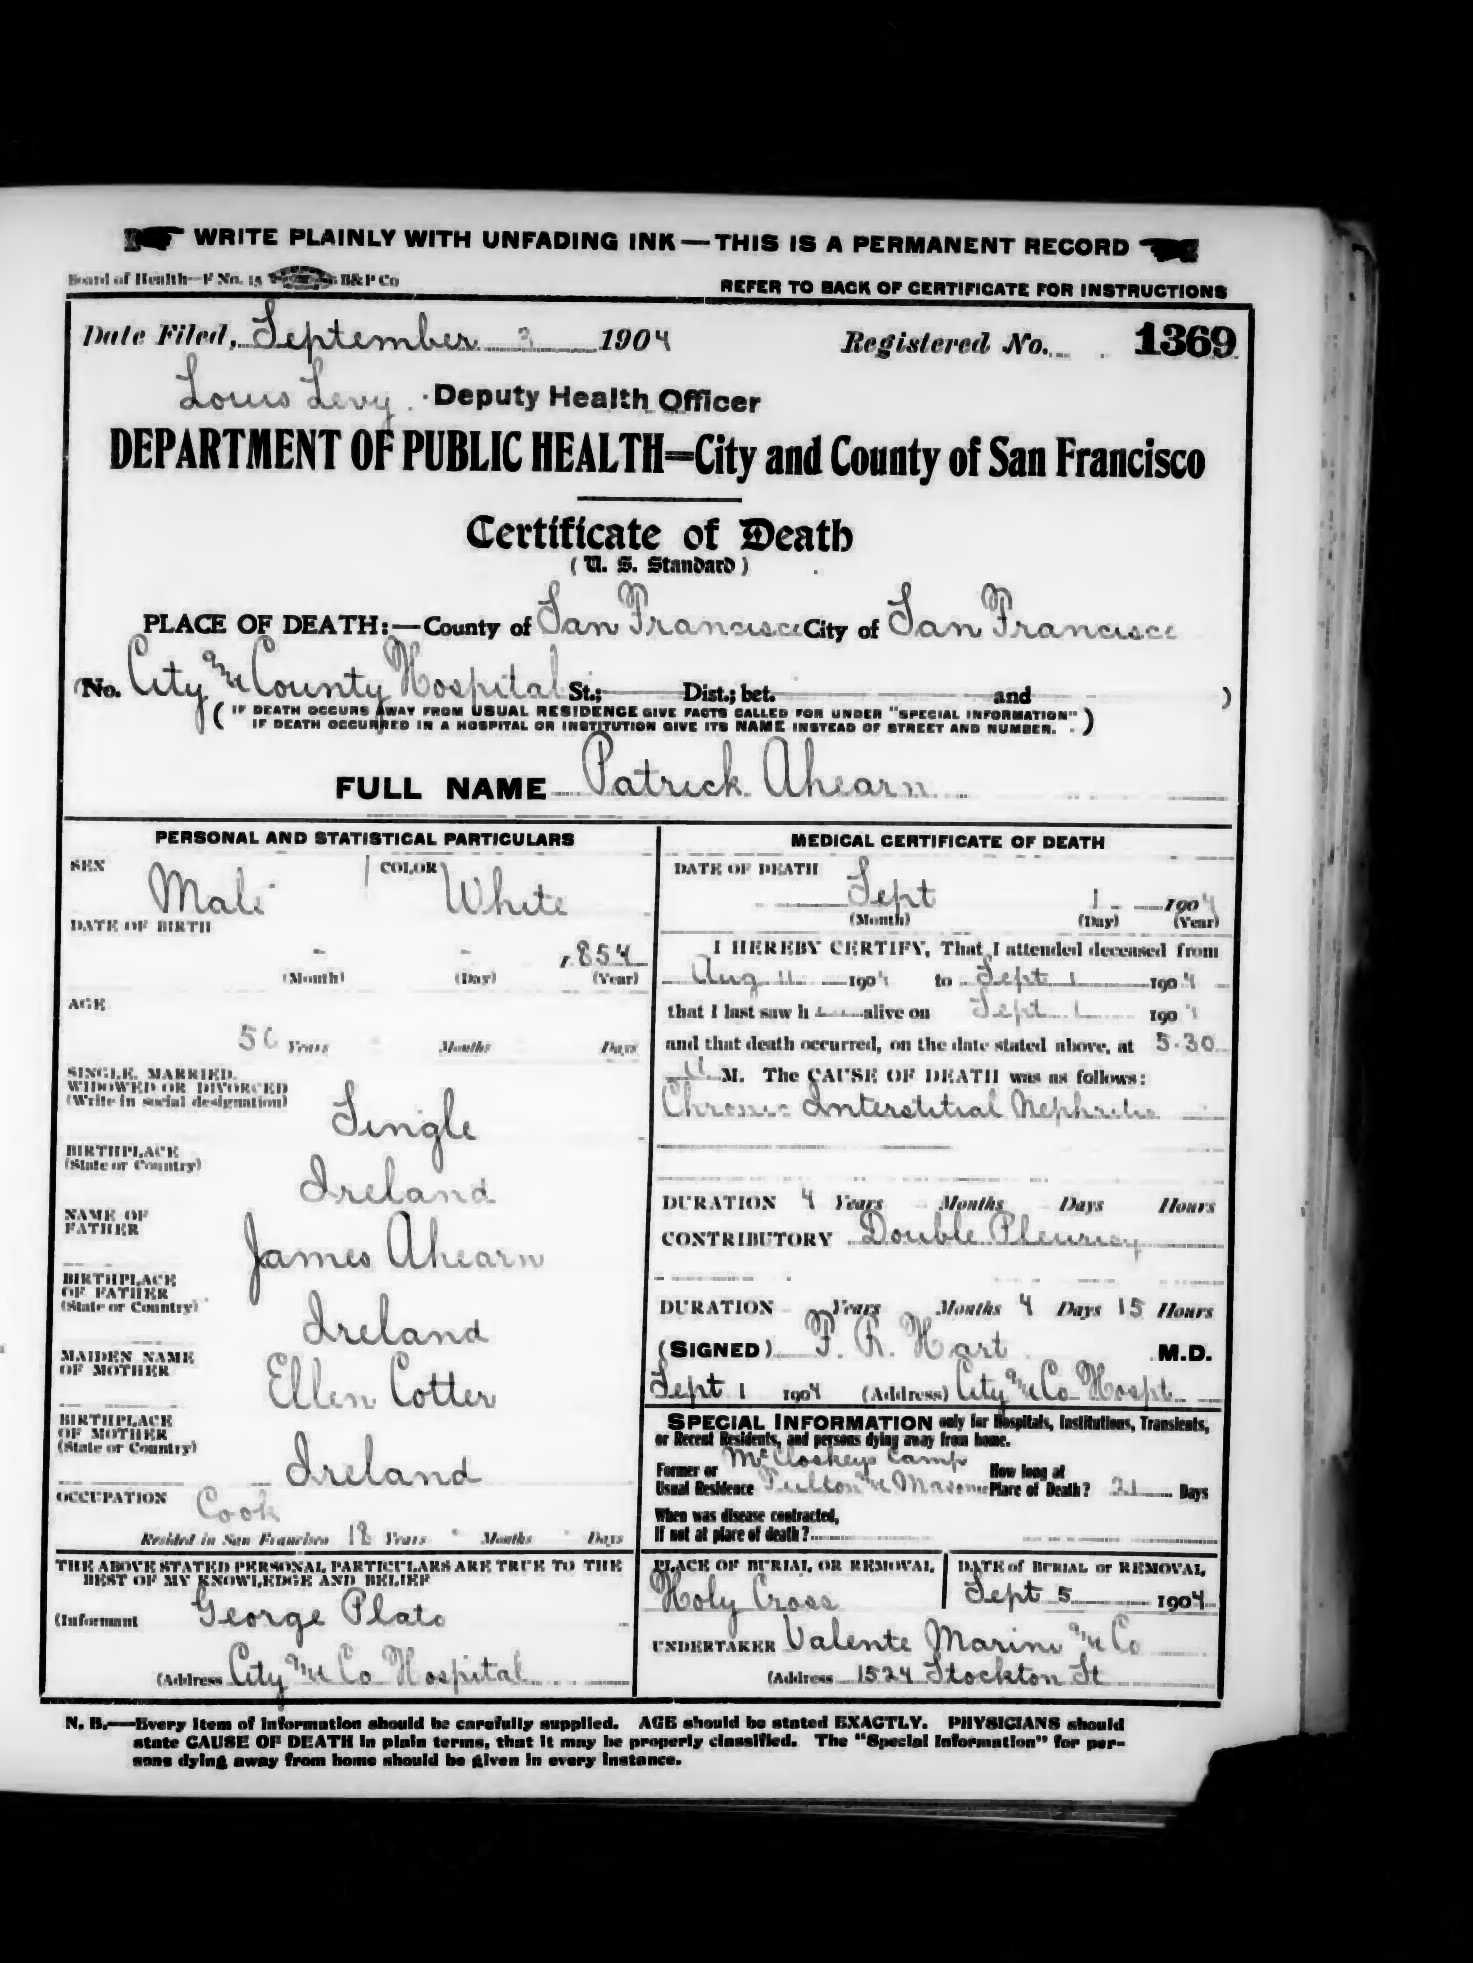 WRITE PLAINLY WITH UNFADING INK—THIS IS A PERMANENT RECORD
Board of Health—F No. 15 B&P Co
REFER TO BACK OF CERTIFICATE FOR INSTRUCTIONS
Date Filed, September 3 1904 Registered No. 1369
Louis Levy. Deputy Health Officer
DEPARTMENT OF PUBLIC HEALTH=City and County of San Francisco
Certificate of Death
(U. S. Standard)
PLACE OF DEATH:—County of San Francisco City of San Francisco
(No. City and County Hospital St.; Dist.; bet. and )
( IF DEATH OCCURS AWAY FROM USUAL RESIDENCE GIVE FACTS CALLED FOR UNDER "SPECIAL INFORMATION"
IF DEATH OCCURRED IN A HOSPITAL OR INSTITUTION GIVE ITS NAME INSTEAD OF STREET AND NUMBER. )
FULL NAME Patrick Ahearn
PERSONAL AND STATISTICAL PARTICULARS
SEX Male COLOR White
DATE OF BIRTH
- - 1854
(Month) (Day) (Year)
AGE
50 Years Months Days
SINGLE, MARRIED,
WIDOWED OR DIVORCED
(Write in social designation) Single
BIRTHPLACE
(State or Country) Ireland
NAME OF
FATHER James Ahearn
BIRTHPLACE
OF FATHER
(State or Country) Ireland
MAIDEN NAME
OF MOTHER Ellen Cotter
BIRTHPLACE
OF MOTHER
(State or Country) Ireland
OCCUPATION Cook
Resided in San Francisco 18 Years Months Days
THE ABOVE STATED PERSONAL PARTICULARS ARE TRUE TO THE
BEST OF MY KNOWLEDGE AND BELIEF
(Informant George Plato
(Address City and Co Hospital
MEDICAL CERTIFICATE OF DEATH
DATE OF DEATH
Sept 1 1904
(Month) (Day) (Year)
I HEREBY CERTIFY, That I attended deceased from
Aug 11 1904 to Sept 1 1904
that I last saw h alive on Sept 1 1904
and that death occurred, on the date stated above, at 5.30
M. The CAUSE OF DEATH was as follows:
Chronic Interstitial Nephritis
DURATION 4 Years Months Days Hours
CONTRIBUTORY Double Pleurisy
DURATION Years Months 4 Days 15 Hours
(SIGNED) F. R. Hart M.D.
Sept 1 1904 (Address) City and Co Hospt
SPECIAL INFORMATION only for Hospitals, Institutions, Transients,
or Recent Residents, and persons dying away from home.
Former or McCloskeys Camp How long at
Usual Residence Fulton and Masonic Place of Death? 21 Days
When was disease contracted,
If not at place of death?
PLACE OF BURIAL OR REMOVAL
Holy Cross
DATE of BURIAL or REMOVAL
Sept 5 1904
UNDERTAKER Valente Marini and Co
(Address 1524 Stockton St
N. B.—Every item of information should be carefully supplied. AGE should be stated EXACTLY. PHYSICIANS should
state CAUSE OF DEATH in plain terms, that it may be properly classified. The "Special Information" for per-
sons dying away from home should be given in every instance.